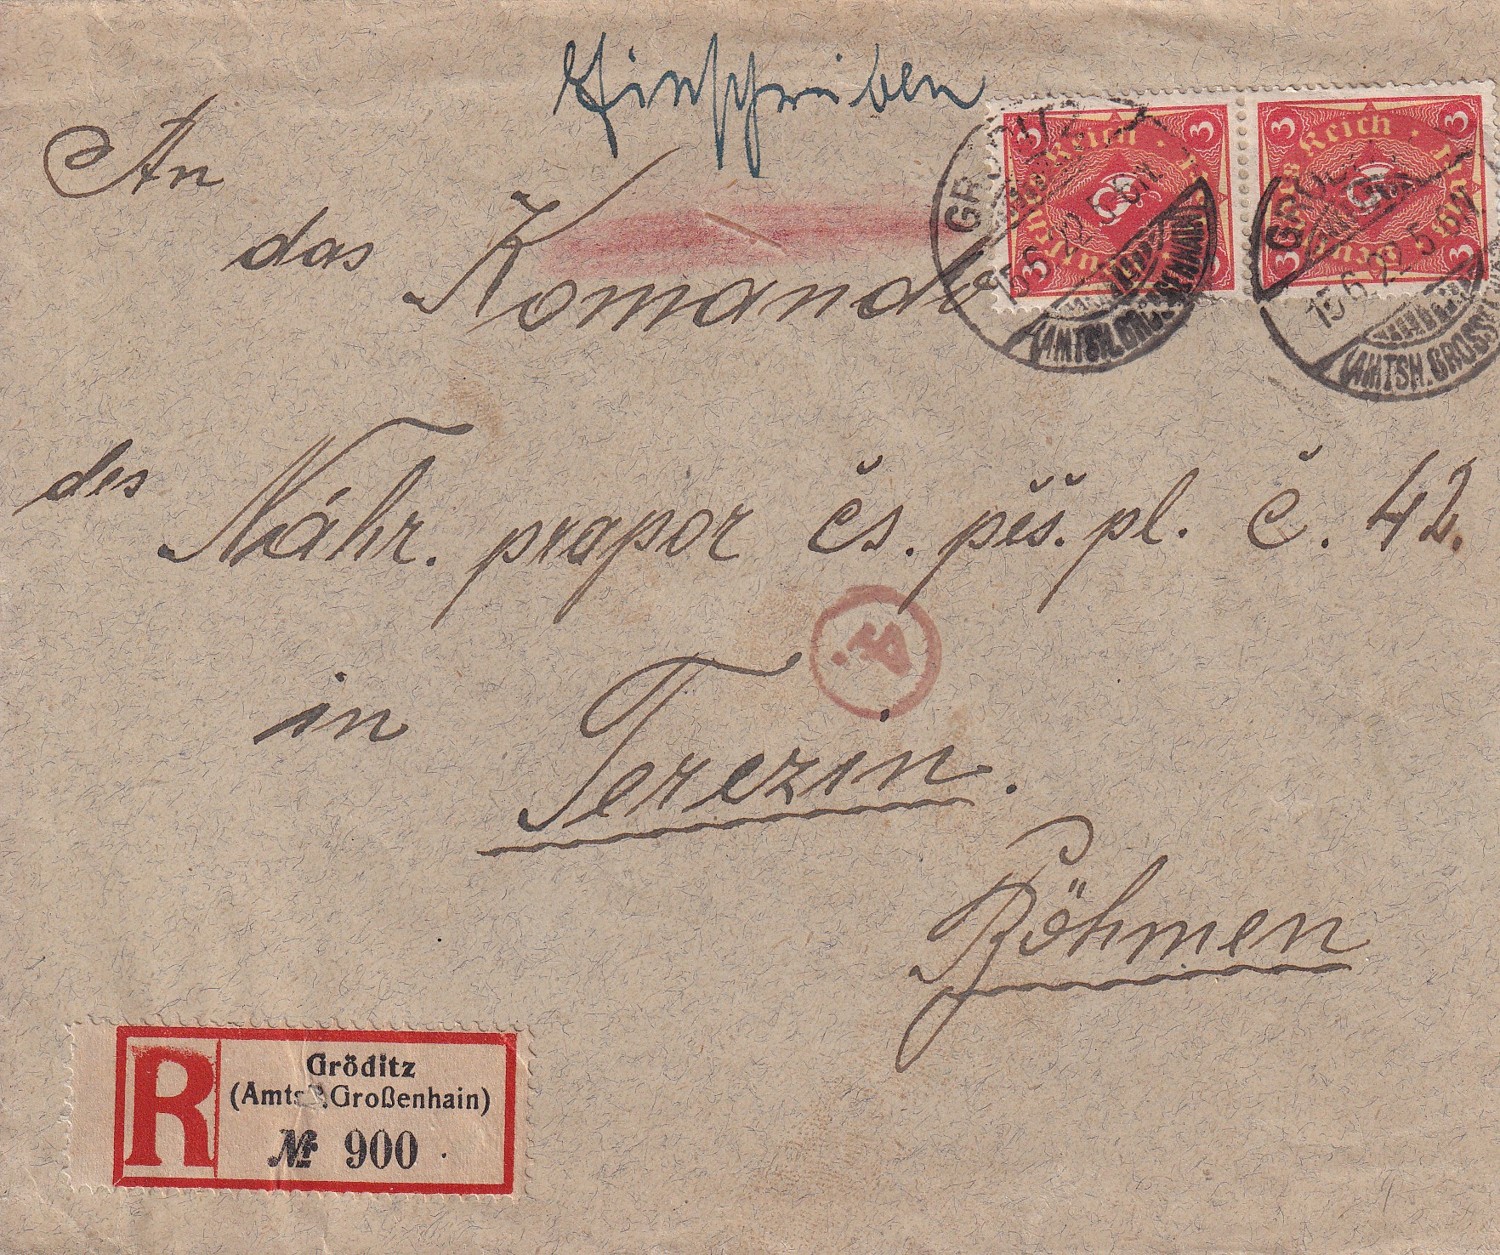 Einschreiben
An
das Komando
des Náhr. prapor čs. pěš. pl. č. 42.
in Terezin.
Böhmen
3 3 3
Deutsches Reich
3 3 3
Deutsches Reich
GRÖDITZ
15.6.22. 5-6N.
(AMTSH. GROSSENHAIN)
GRÖDITZ
15.6.22. 5-6N.
(AMTSH. GROSSE
R
Gröditz
(Amtsh. Großenhain)
№ 900